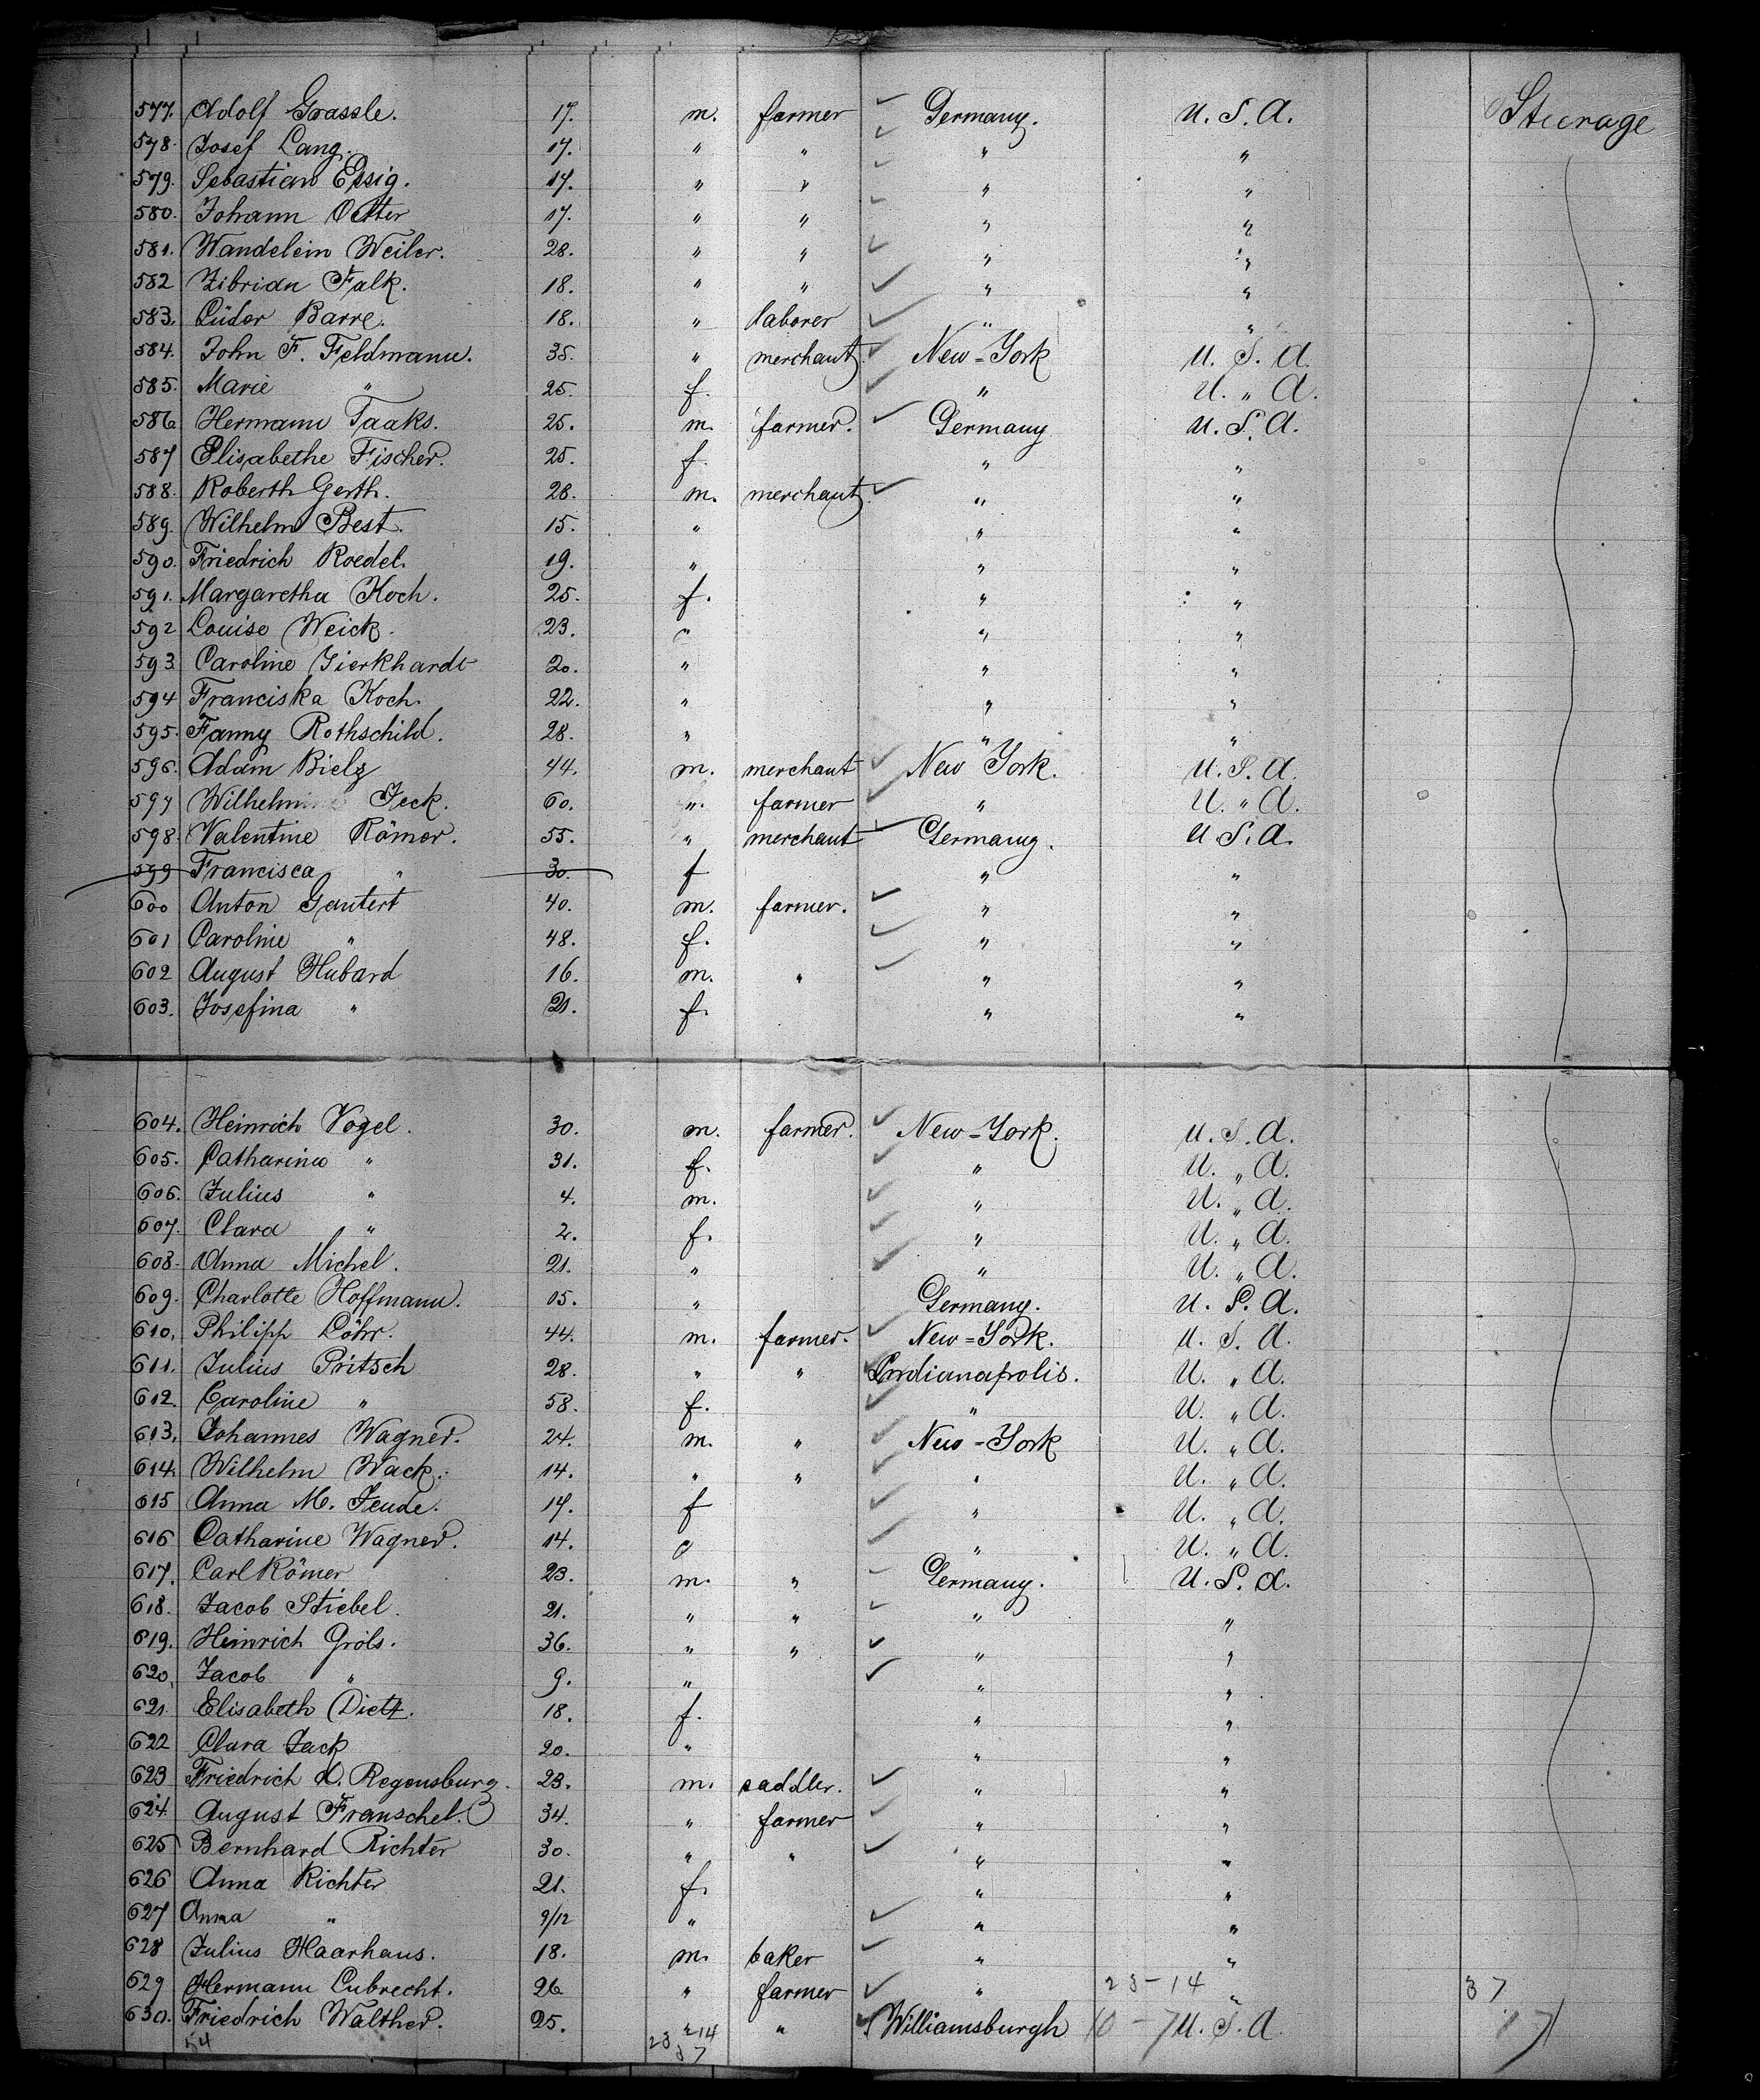 577. Adolf Grassle. 17. m. farmer Germany. U. S. A. Steerage
578. Josef Lang. 17. " " " "
579. Sebastian Essig. 17. " " " "
580. Johann Oetter 17. " " " "
581. Wandelein Weiler. 28. " " " "
582 Zibrian Falk. 18. " " " "
583. Lüder Barre. 18. " laborer " "
584. John F. Feldmann. 35. " merchant. New-York U. S. A.
585. Marie " 25. f. " U. " A.
586 Hermann Taaks. 25. m. farmer. Germany U. S. A.
587 Elisabethe Fischer. 25. f. " "
588. Roberth Gerth. 28. m. merchant. " "
589. Wilhelm Best. 15. " " "
590. Friedrich Roedel. 19. " " "
591. Margaretha Koch. 25. f. " "
592 Louise Weick. 23. " " "
593. Caroline Gierkhardt 20. " " "
594 Franciska Koch. 22. " " "
595. Fanny Rothschild. 28. " " "
596. Adam Bielz 44. m. merchant New York. U. S. A.
597 Wilhelm Jeck. 60. " farmer " U. " A.
598. Valentine Römer. 55. " merchant Germany. U S. A.
599 Francisca " 30. f " "
600 Anton Gantert 40. m. farmer. " "
601 Caroline " 48. f. " "
602 August Hubard 16. m. " " "
603. Josefina " 21. f. " "
604. Heinrich Vogel. 30. m. farmer. New-York. U. S. A.
605. Catharina " 31. f. " U. " A.
606. Julius " 4. m. " U. " A.
607. Clara " 2. f. " U. " A.
608. Anna Michel. 21. " " U. " A.
609. Charlotte Hoffmann. 05. " Germany. U. S. A.
610. Philipp Löhr. 44. m. farmer. New-York. U. S. A.
611. Julius Pritsch 28. " " Indianapolis. U. " A.
612. Caroline " 58. f. " U. " A.
613. Johannes Wagner. 24. m. " New-York U. " A.
614. Wilhelm Wack. 14. " " " U. " A.
615 Anna M. Jeude. 17. f " U. " A.
616 Catharine Wagner. 14. " " U. " A.
617. Carl Römer 23. m. " Germany. U. S. A.
618. Jacob Stiebel. 21. " " " "
619. Heinrich Gröls. 36. " " " "
620. Jacob " 9. " " "
621. Elisabeth Dietz. 18. f. " "
622 Clara Jack 20. " " "
623 Friedrich A. Regensburg. 23. m. saddler. " "
624. August Franschel. 34. " farmer " "
625 Bernhard Richter 30. " " " "
626 Anna Richter 21. f. " "
627 Anna " 9/12 " " "
628 Julius Haarhaus. 18. m. baker " "
629 Hermann Lubrecht. 26 " farmer " 23-14 " 37
630. Friedrich Walther. 25. " " Williamsburgh 10-7 U. S. A. 17
54 23 14
37